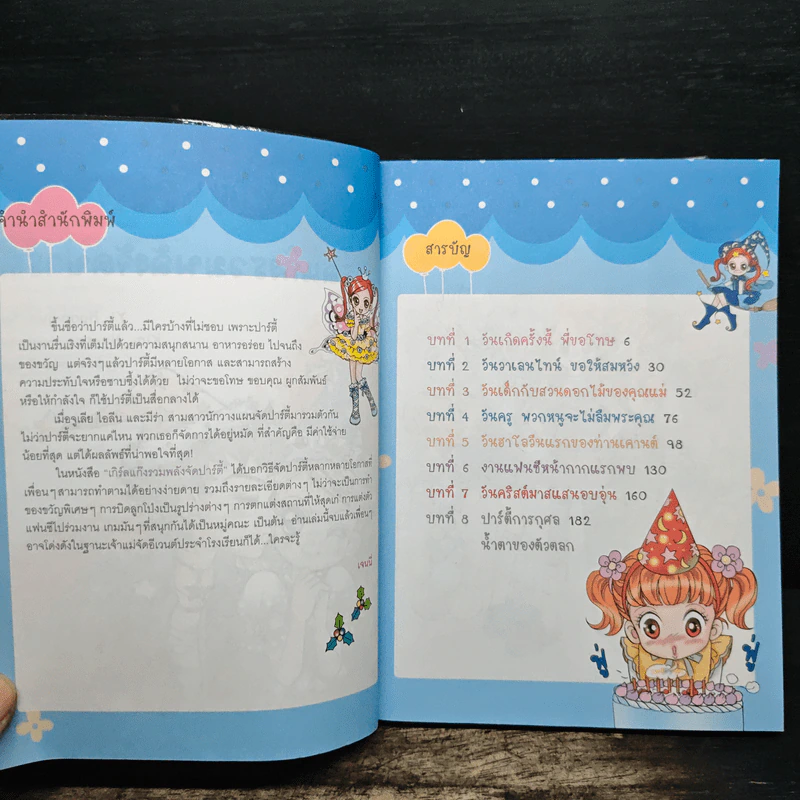 คำนำสำนักพิมพ์
ขึ้นชื่อว่าปาร์ตี้แล้ว...มีใครบ้างที่ไม่ชอบ เพราะปาร์ตี้
เป็นงานรื่นเริงที่เต็มไปด้วยความสนุกสนาน อาหารอร่อย ไปจนถึง
ของขวัญ แต่จริงๆ แล้วปาร์ตี้มีหลายโอกาส และสามารถสร้าง
ความประทับใจหรือซาบซึ้งได้ด้วย ไม่ว่าจะขอโทษ ขอบคุณ ผูกสัมพันธ์
หรือให้กำลังใจ ก็ใช้ปาร์ตี้เป็นสื่อกลางได้
เมื่อจูเลีย ไอลีน และมีร่า สามสาวนักวางแผนจัดปาร์ตี้มารวมตัวกัน
ไม่ว่าปาร์ตี้จะยากแค่ไหน พวกเธอก็จัดการได้อยู่หมัด ที่สำคัญคือ มีค่าใช้จ่าย
น้อยที่สุด แต่ได้ผลลัพธ์ที่น่าพอใจที่สุด!
ในหนังสือ "เกิร์ลแก๊งรวมพลังจัดปาร์ตี้" ได้บอกวิธีจัดปาร์ตี้หลากหลายโอกาสที่
เพื่อนๆ สามารถทำตามได้อย่างง่ายดาย รวมถึงรายละเอียดต่างๆ ไม่ว่าจะเป็นการทำ
ของขวัญพิเศษๆ การบิดลูกโป่งเป็นรูปร่างต่างๆ การตกแต่งสถานที่ให้สุดเก๋ การแต่งตัว
แฟนซีไปร่วมงาน เกมมันๆ ที่สนุกกันได้เป็นหมู่คณะ เป็นต้น อ่านเล่มนี้จบแล้วเพื่อนๆ
อาจโด่งดังในฐานะเจ้าแม่จัดอีเวนต์ประจำโรงเรียนก็ได้...ใครจะรู้
เจนนี่
สารบัญ
บทที่ 1 วันเกิดครั้งนี้ พี่ขอโทษ 6
บทที่ 2 วันวาเลนไทน์ ขอให้สมหวัง 30
บทที่ 3 วันเด็กกับสวนดอกไม้ของคุณแม่ 52
บทที่ 4 วันครู พวกหนูจะไม่ลืมพระคุณ 76
บทที่ 5 วันฮาโลวีนแรกของท่านเคานต์ 98
บทที่ 6 งานแฟนซีหน้ากากแรกพบ 130
บทที่ 7 วันคริสต์มาสแสนอบอุ่น 160
บทที่ 8 ปาร์ตี้การกุศล 182
น้ำตาของตัวตลก
ฟู่ ฟู่